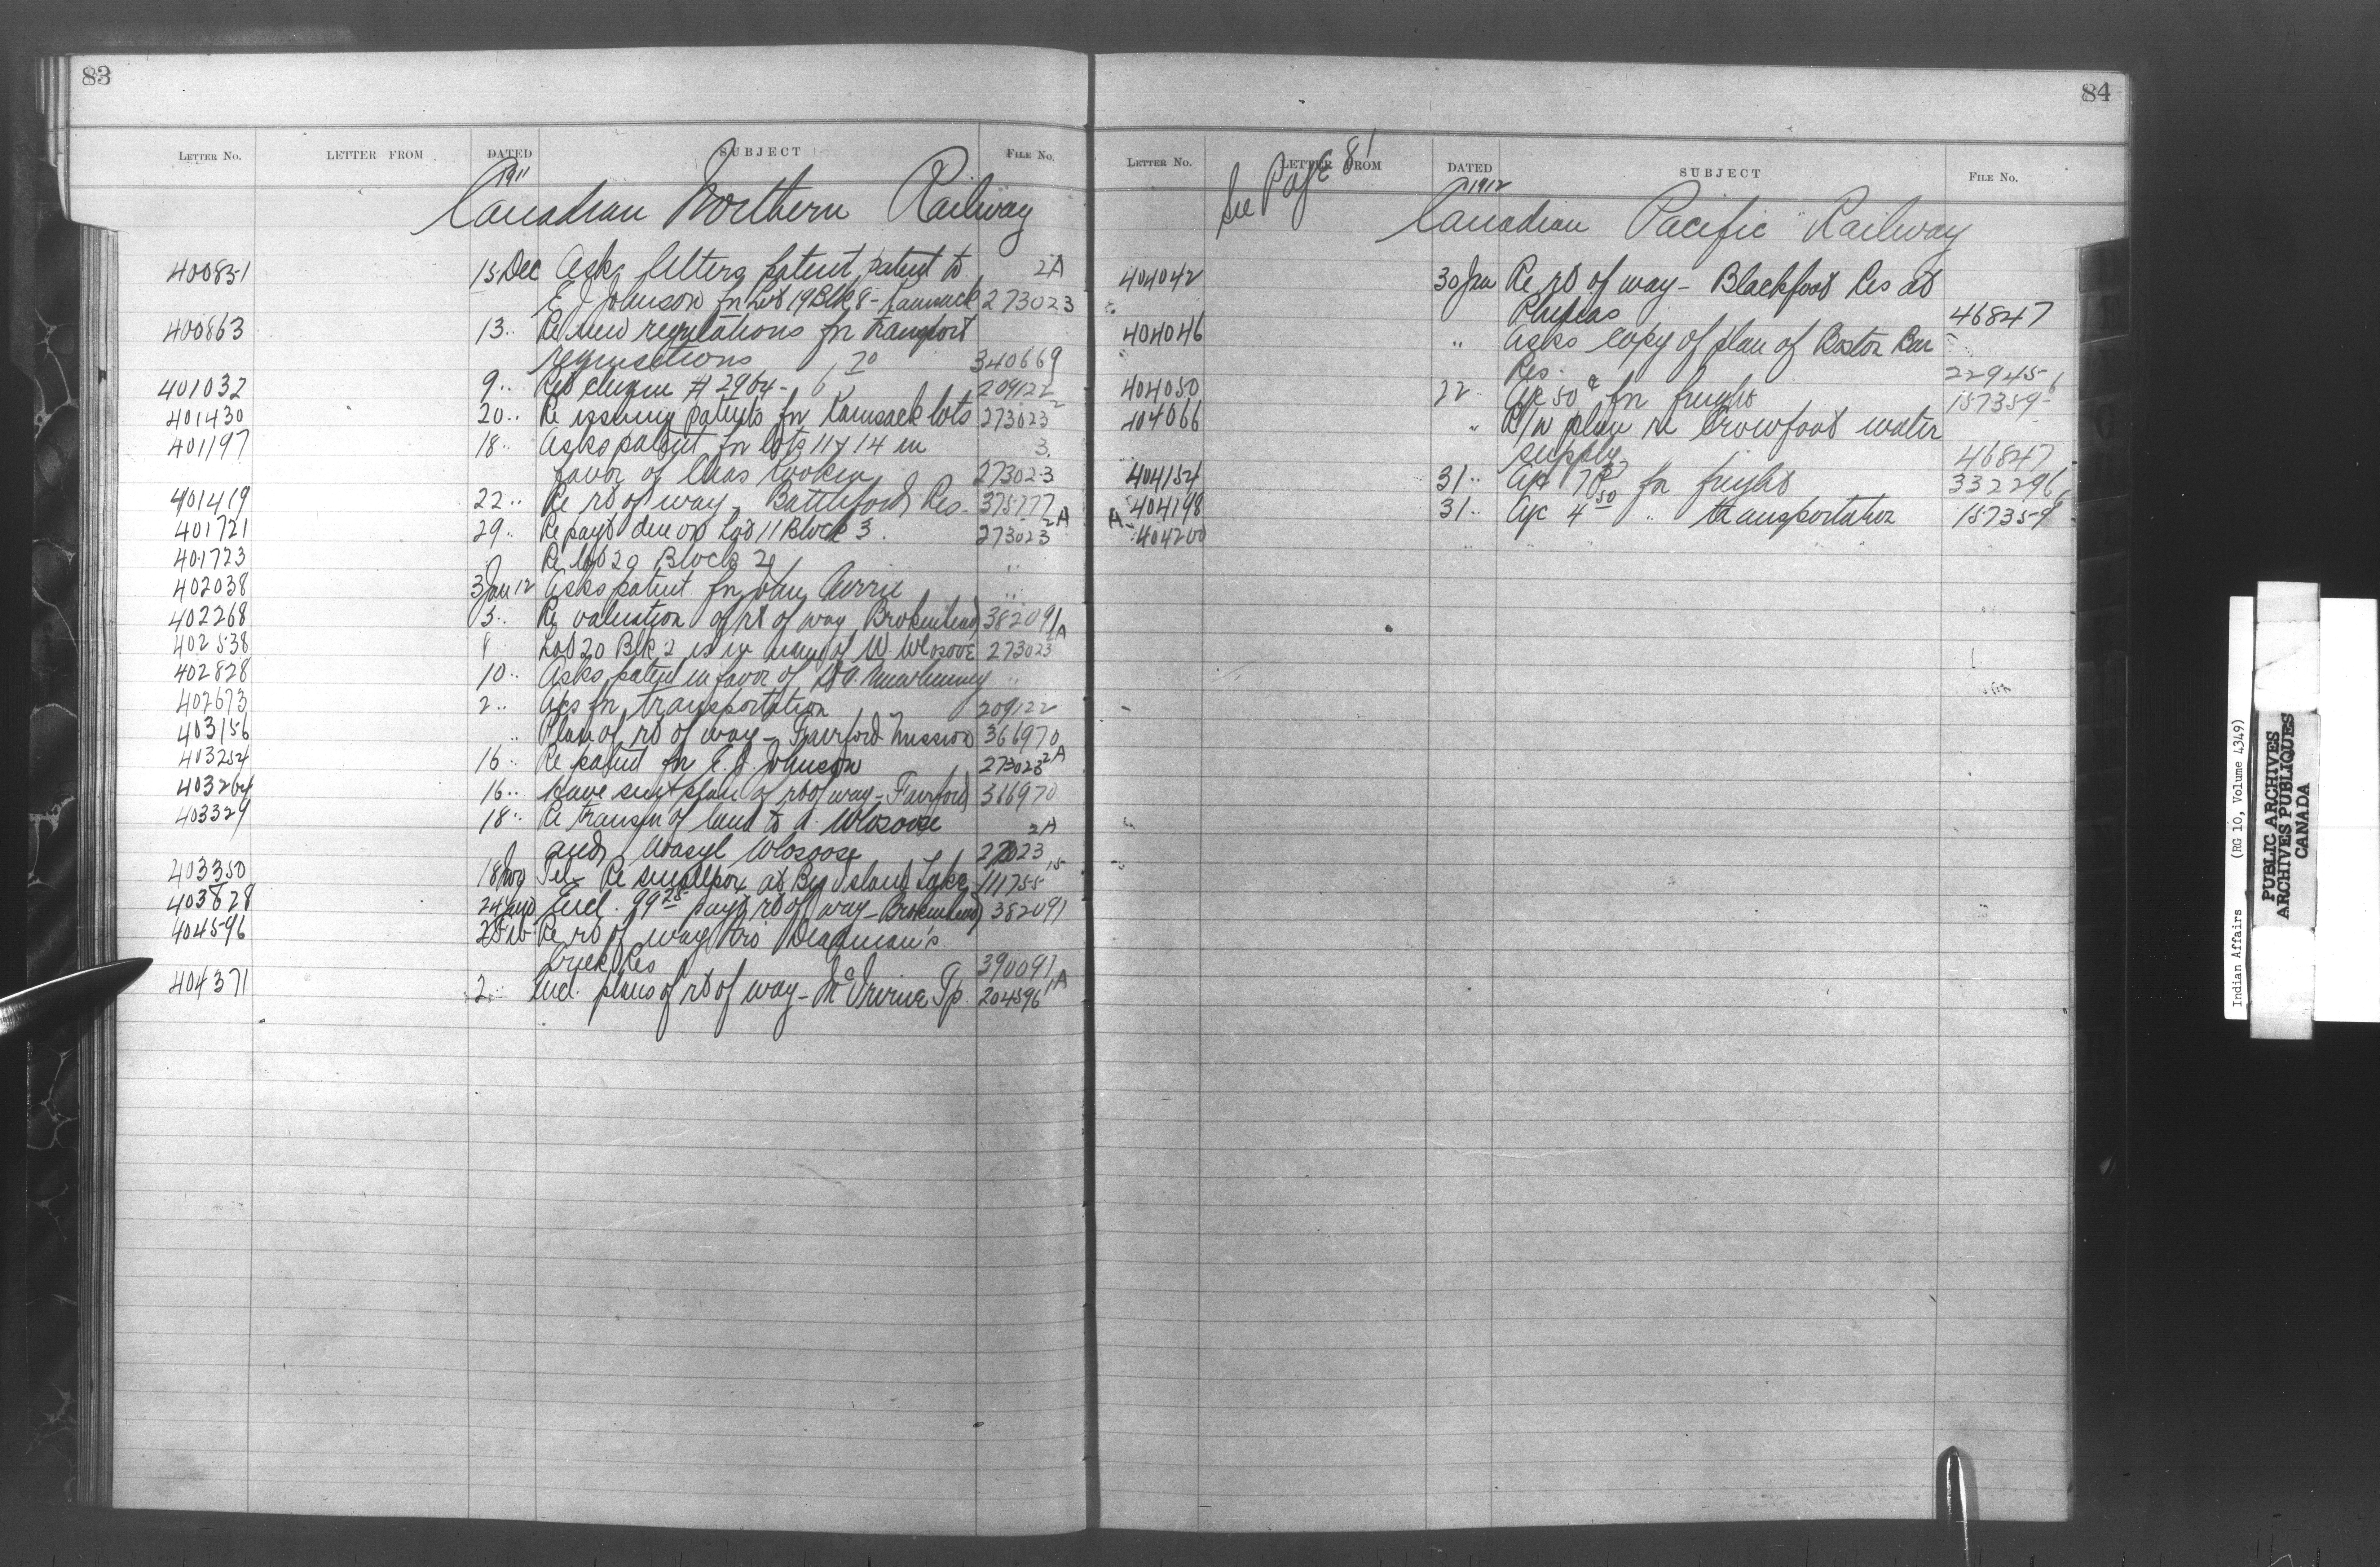 83
LETTER NO. LETTER FROM DATED SUBJECT FILE NO.
1911
Canadian Northern Railway
400851 15 Dec Asks letters patent patent to 2A
E J Johnson for Lot 19 Blk 8 - Kamsack 273023
400863 13 " Re new regulations for transport
requisitions 340669
401032 9 " Ret cheque # 2964 - 6 70 209122
401430 20 " Re issuing patents for Kamsack lots 273023 2
401197 18 " Asks patent for lots 11 & 14 in 3
favor of Chas 273023
401419 22 " Re rt of way - Battleford Res. 375777
401721 29 " Re payt due on Lot 11 Block 3. 273023 2A
401723 " Re lot 20 Block 2 "
402038 3 Jan 12 Asks patent for John "
402268 5 " Re valuation of rt of way Brokenhead 382091
402538 8 Lot 20 Blk 2 is in name of W. Wlosove 273023 2A
402828 10 " Asks patent in favor of "
402673 2 " A/cs for transportation 209122
403156 " Plan of rt of way - Fairford Mission 366970
403254 16 " Re patent for E. J. Johnson 273023 2A
403264 16 " Have sent plan of rt of way - Fairford 366970
403329 18 " Re transfer of land to A. Wlosove 2A
and Wasyl Wlosoose 27023
403350 18 Tel - Re smallpox at Big Island Lake 111755 15
403828 24 Encl. 99 28 payt rt of way - Brokenhead 382091
404596 2 Feb Re rt of way thro Deadman's
Creek Res 390091
404371 2 " Encl. plans of rt of way - McIrvine Tp. 204596 1A
84
LETTER NO. LETTER FROM DATED SUBJECT FILE NO.
See Page 81
1912
Canadian Pacific Railway
404042 30 Jan Re rt of way - Blackfoot Res at
46847
404046 " Asks copy of plan of Boston Bar
Res. 22945
404050 22 " A/c 50 c for freight 157359 6
404066 " R/w plan re Crowfoot water
supply 46847
404154 31 " A/c for freight 332296
404198 31 " A/c 4 50 " transportation 157359
A- 404200 " " " "
Indian Affairs (RG 10, Volume 4349)
PUBLIC ARCHIVES
ARCHIVES PUBLIQUES
CANADA